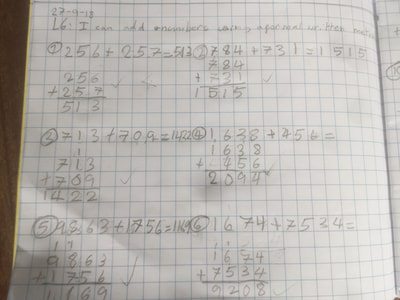 27-9-18
L6: I can add numbers using a formal written
① 256 + 257 = 513
256
+ 257
513
② 784 + 731 = 1515
784
+ 731
1515
713 + 709 = 1422
1
713
+ 709
1422
④ 1638 + 456 =
1638
+ 456
2094
⑤ 9863 + 1756 =
1 1
9863
+ 1756
⑥ 1674 + 7534 =
1 1
1674
+ 7534
9208